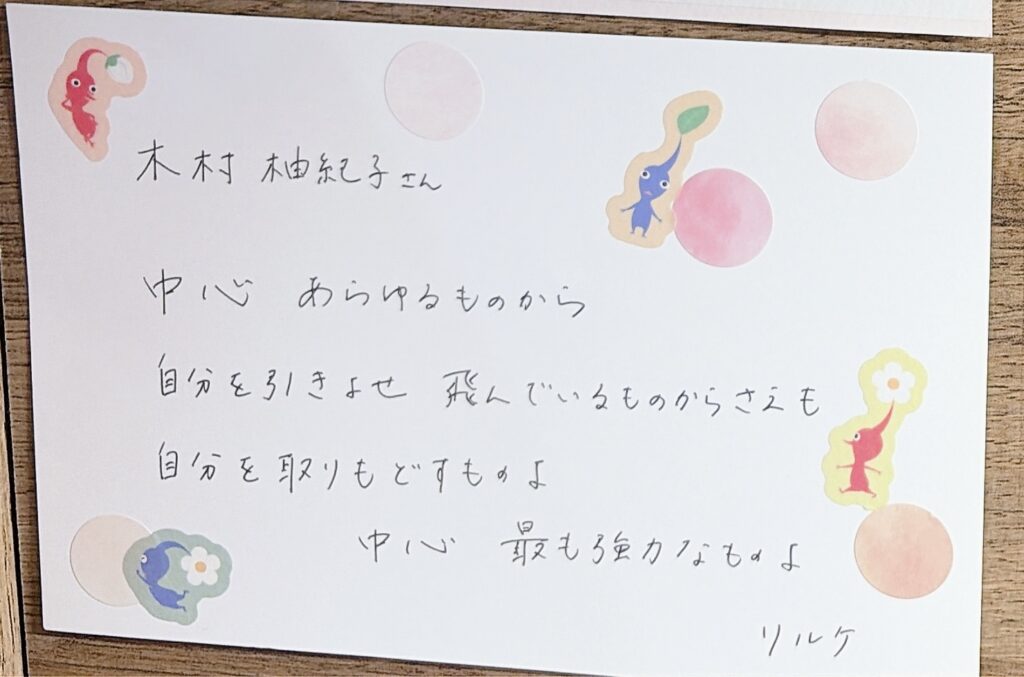 木村 柚紀子さん
中心 あらゆるものから
自分を引きよせ 飛んでいるものからさえも
自分を取りもどすものよ
中心 最も強力なものよ
リルケ